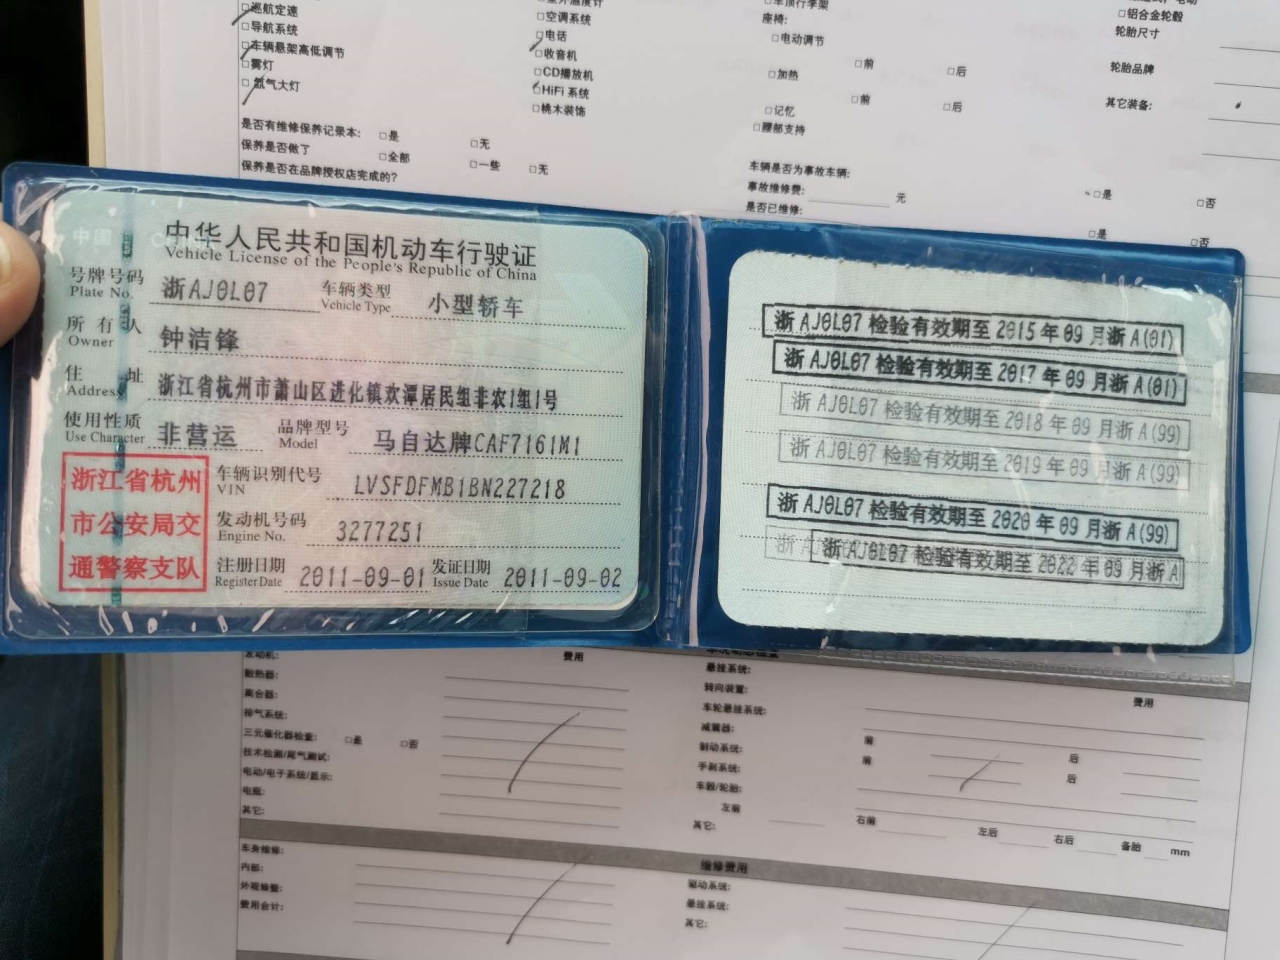 巡航定速
导航系统
车辆悬架高低调节
雾灯
氙气大灯
空调系统
电话
收音机
CD播放机
HiFi 系统
桃木装饰
座椅:
电动调节
□前 □后
加热
□前 □后
记忆
腰部支持
□铝合金轮毂
轮胎尺寸
轮胎品牌
其它装备:
是否有维修保养记录本: □是 □无
保养是否做了 □全部 □一些 □无
保养是否在品牌授权店完成的?
车辆是否为事故车辆: □是 □否
事故维修费: 元
是否已维修: □是 □否
中华人民共和国机动车行驶证
Vehicle License of the People's Republic of China
号牌号码 浙AJ0L07 车辆类型 小型轿车
Plate No. Vehicle Type
所有人 钟洁锋
Owner
住址 浙江省杭州市萧山区进化镇欢潭居民组非农1组1号
Address
使用性质 非营运 品牌型号 马自达牌CAF7161M1
Use Character Model
浙江省杭州
市公安局交
通警察支队
车辆识别代号 LVSFDFMB1BN227218
VIN
发动机号码 3277251
Engine No.
注册日期 2011-09-01 发证日期 2011-09-02
Register Date Issue Date
浙 AJ0L07 检验有效期至 2015 年 09 月浙 A(01)
浙 AJ0L07 检验有效期至 2017 年 09 月浙 A(01)
浙 AJ0L07 检验有效期至 2018 年 09 月浙 A(99)
浙 AJ0L07 检验有效期至 2019 年 09 月浙 A(99)
浙 AJ0L07 检验有效期至 2020 年 09 月浙 A(99)
浙 AJ0L07 检验有效期至 2022 年 09 月浙 A
发动机: 费用
散热器:
离合器:
排气系统:
三元催化器检查: □是 □否
技术检测/尾气测试:
电动/电子系统/显示:
电瓶:
其它:
悬挂系统: 费用
转向装置:
车轮悬挂系统:
减震器: 前 后
制动系统: 前 后
手刹系统:
车毂/轮胎:
左前 右前 左后 右后 备胎 mm
其它:
维修费用
车身维修:
内部:
外观修整:
费用合计:
驱动系统:
悬挂系统:
其它: